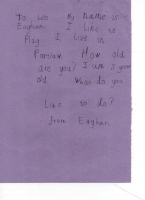 To Leo My name is
Eoghan I like to
Play I live in
How old
are you? I am 5 years
old What do you
Like to do?
from Eoghan